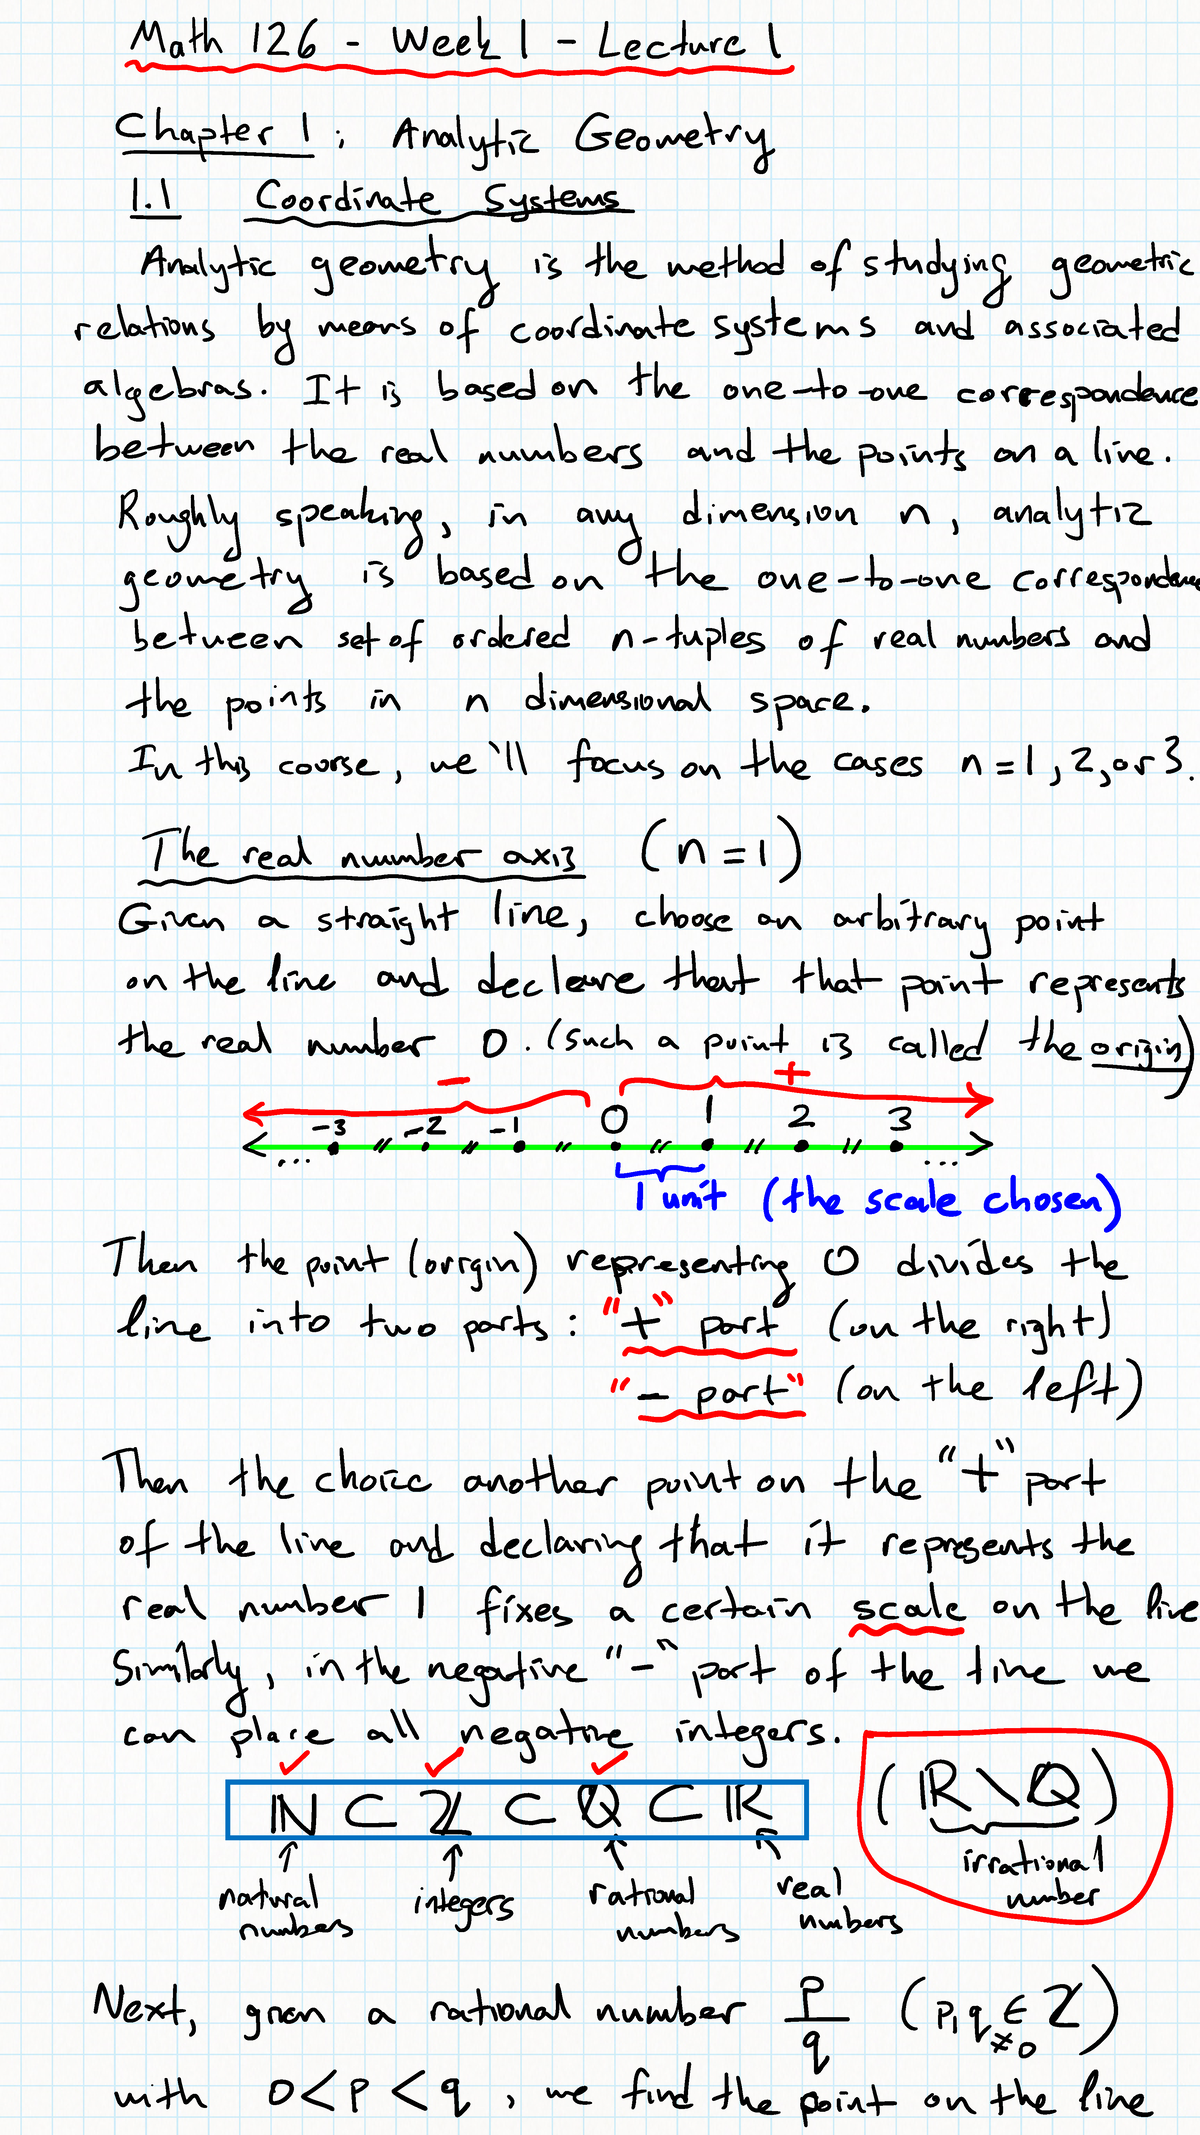 Math 126 - Week 1 - Lecture 1
Chapter 1 : Analytic Geometry
1.1 Coordinate Systems
Analytic geometry is the method of studying geometric
relations by means of coordinate systems and associated
algebras. It is based on the one-to-one correspondence
between the real numbers and the points on a line.
Roughly speaking, in any dimension n, analytic
geometry is based on the one-to-one correspondence
between set of ordered n-tuples of real numbers and
the points in n dimensional space.
In this course, we'll focus on the cases n=1,2,or 3.
The real number axis (n=1)
Given a straight line, choose an arbitrary point
on the line and declare that that point represents
the real number 0. (Such a point is called the origin)
- +
-3 -2 -1 0 1 2 3
... ...
1 unit (the scale chosen)
Then the point (origin) representing 0 divides the
line into two parts : "+" part (on the right)
"- part" (on the left)
Then the choice another point on the "+" part
of the line and declaring that it represents the
real number 1 fixes a certain scale on the line
Similarly, in the negative "-" part of the line we
can place all negative integers.
ℕ ⊂ ℤ ⊂ ℚ ⊂ ℝ (ℝ\ℚ)
natural numbers integers rational numbers real numbers irrational number
Next, given a rational number p/q (p,q ∈ ℤ) ≠0
with 0<p<q, we find the point on the line